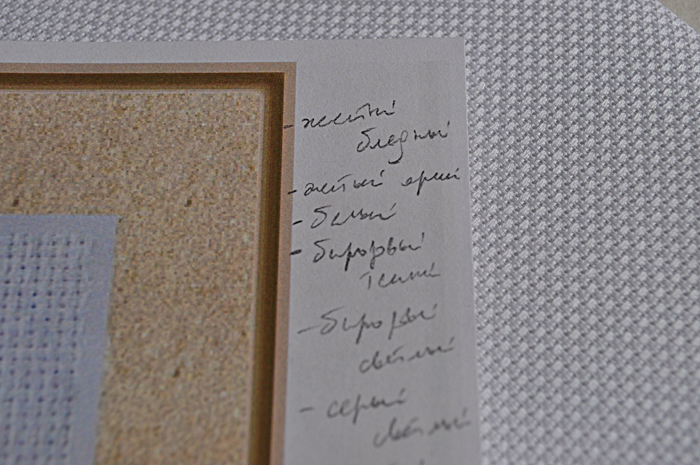 - желтый
бледный
- желтый яркий
- белый
- бирюзовый
темный
- бирюзовый
светлый
- серый
светлый